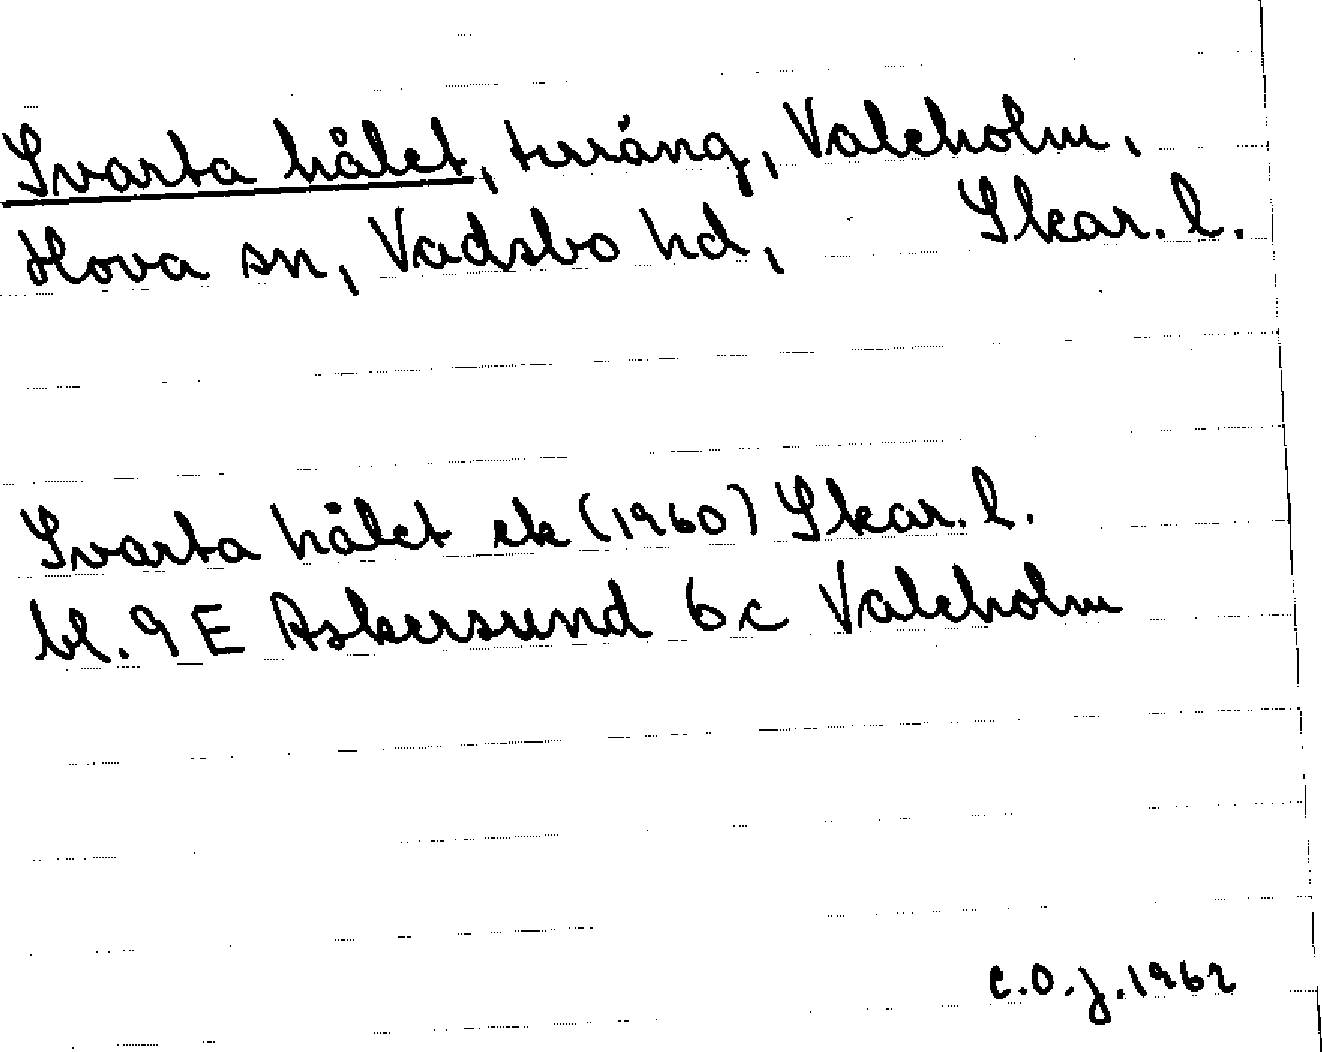 Svarta hålet, terräng, Valeholm,
Hova sn, Vadsbo hd, Skar. l.
Svarta hålet ek (1960) Skar. l.
bl. 9 E Askersund 6c Valeholm
C.O.J. 1962